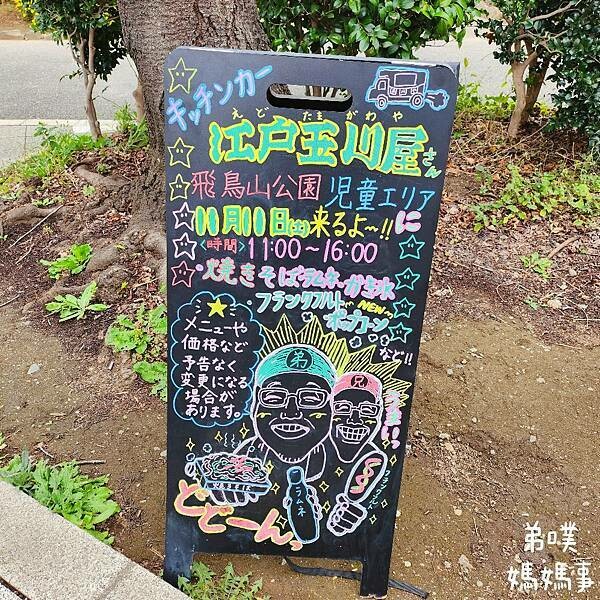 キッチンカー
えど たまがわや
江戸玉川屋さん
飛鳥山公園 児童エリアに
11月11日(土)来るよ〜!!
〈時間〉11:00〜16:00
・焼きそば・ラムネ・かき氷
・フランクフルト NEW
ポップコーン
など!!
メニューや
価格など
予告なく
変更になる
場合が
あります。
弟
兄
うまいっ
ラムネ
フランクフルト
どどーんっ
弟噗
媽媽事